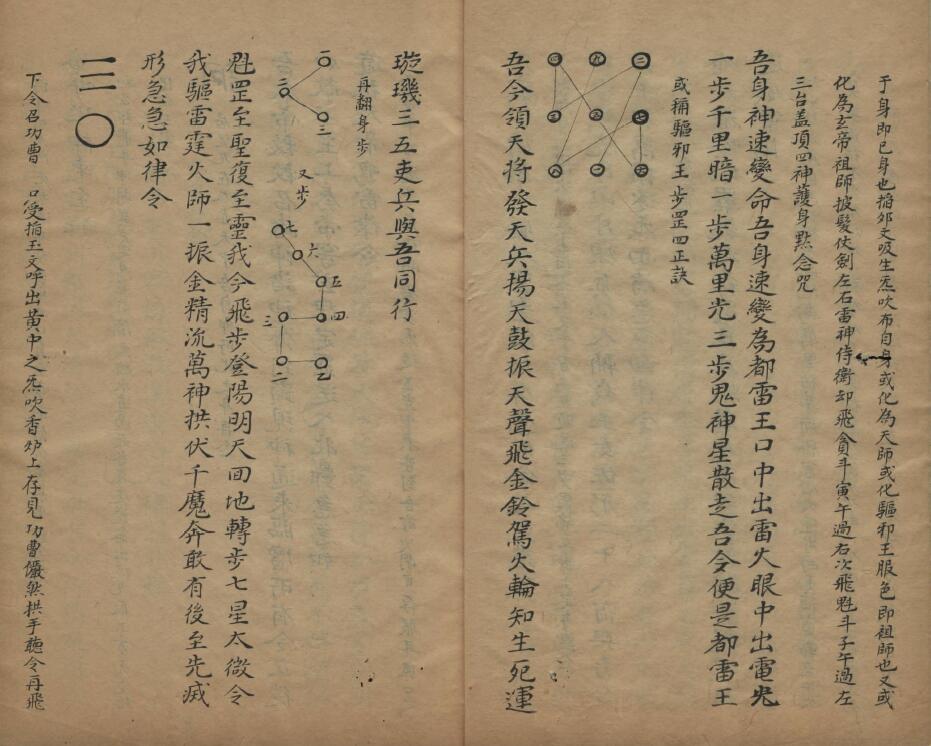 于身即已身也稍郊文吸生炁吹布自身或化為天師或化驅邪王服色即祖師也又或
化為玄帝祖師披髮仗劍左右雷神侍衛却飛貪斗寅午過右次飛魁斗子午過左
三台盖頂四神護身點念咒
吾身神速變命吾身速變為都雷王口中出雷火眼中出電光
一步千里暗一步萬里光三步鬼神星散走吾今便是都雷王
或稱驅邪王步罡四正訣
二 七 六
九 五 一
四 三 八
吾今領天將發天兵揚天鼓振天聲飛金鈴駕火輪知生死運
璇璣三五吏兵與吾同行
再翻身步
一 二 三
又步
七 六 五 四 三 二 乙
魁罡至聖復至靈我今飛步登陽明天回地轉步七星太微令
我驅雷霆火師一振金精流萬神拱伏千魔奔敢有後至先滅
形急急如律令
三〇
下令召功曹 口受掐玉文呼出黄中之炁吹香炉上存見功曹儼然拱手聽令再飛